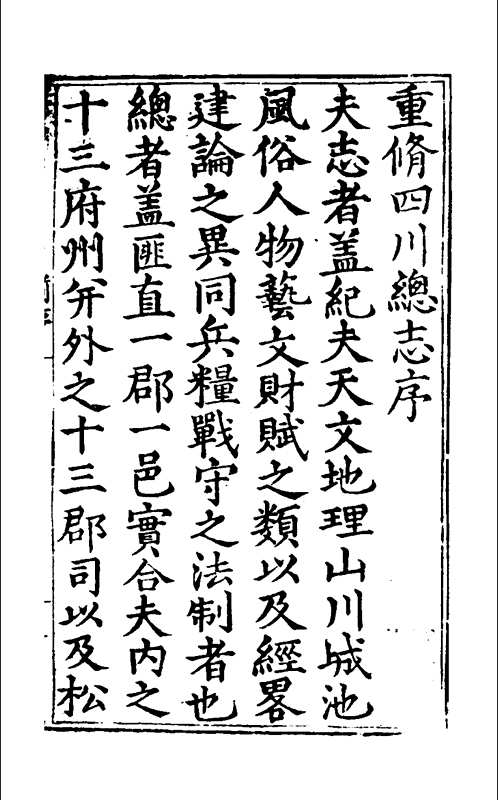 重脩四川總志序
夫志者蓋紀夫天文地理山川城池
風俗人物藝文財賦之類以及經畧
建論之異同兵糧戰守之法制者也
總者蓋匪直一郡一邑實合夫內之
十三府州并外之十三郡司以及松